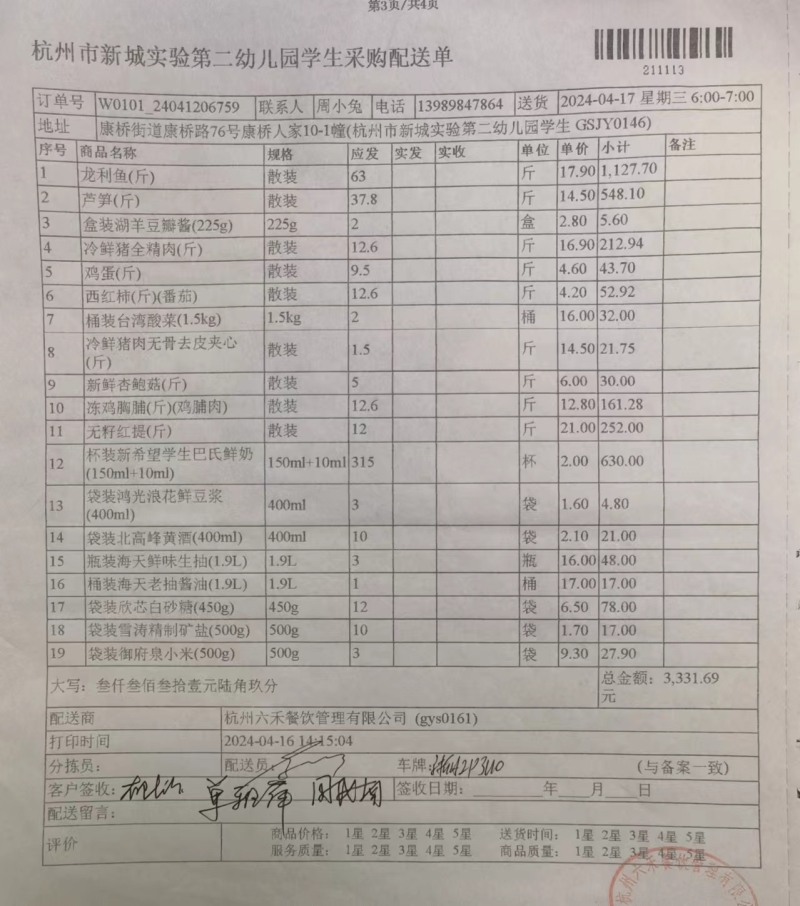 第3页/共4页
杭州市新城实验第二幼儿园学生采购配送单
211113
订单号 W0101_24041206759 联系人 周小兔 电话 13989847864 送货 2024-04-17 星期三 6:00-7:00
地址 康桥街道康桥路76号康桥人家10-1幢(杭州市新城实验第二幼儿园学生 GSJY0146)
序号 商品名称 规格 应发 实发 实收 单位 单价 小计 备注
1 龙利鱼(斤) 散装 63 斤 17.90 1,127.70
2 芦笋(斤) 散装 37.8 斤 14.50 548.10
3 盒装湖羊豆瓣酱(225g) 225g 2 盒 2.80 5.60
4 冷鲜猪全精肉(斤) 散装 12.6 斤 16.90 212.94
5 鸡蛋(斤) 散装 9.5 斤 4.60 43.70
6 西红柿(斤)(番茄) 散装 12.6 斤 4.20 52.92
7 桶装台湾酸菜(1.5kg) 1.5kg 2 桶 16.00 32.00
8 冷鲜猪肉无骨去皮夹心
(斤) 散装 1.5 斤 14.50 21.75
9 新鲜杏鲍菇(斤) 散装 5 斤 6.00 30.00
10 冻鸡胸脯(斤)(鸡脯肉) 散装 12.6 斤 12.80 161.28
11 无籽红提(斤) 散装 12 斤 21.00 252.00
12 杯装新希望学生巴氏鲜奶
(150ml+10ml) 150ml+10ml 315 杯 2.00 630.00
13 袋装鸿光浪花鲜豆浆
(400ml) 400ml 3 袋 1.60 4.80
14 袋装北高峰黄酒(400ml) 400ml 10 袋 2.10 21.00
15 瓶装海天鲜味生抽(1.9L) 1.9L 3 瓶 16.00 48.00
16 桶装海天老抽酱油(1.9L) 1.9L 1 桶 17.00 17.00
17 袋装欣芯白砂糖(450g) 450g 12 袋 6.50 78.00
18 袋装雪涛精制矿盐(500g) 500g 10 袋 1.70 17.00
19 袋装御府泉小米(500g) 500g 3 袋 9.30 27.90
大写：叁仟叁佰叁拾壹元陆角玖分 总金额：3,331.69
元
配送商 杭州六禾餐饮管理有限公司 (gys0161)
打印时间 2024-04-16 14:15:04
分拣员： 配送员： 车牌： (与备案一致)
客户签收： 签收日期：________年____月____日
配送留言：
评价 商品价格： 1星 2星 3星 4星 5星 送货时间： 1星 2星 3星 4星 5星
服务质量： 1星 2星 3星 4星 5星 商品质量： 1星 2星 3星 4星 5星
杭州六禾餐饮管理有限公司